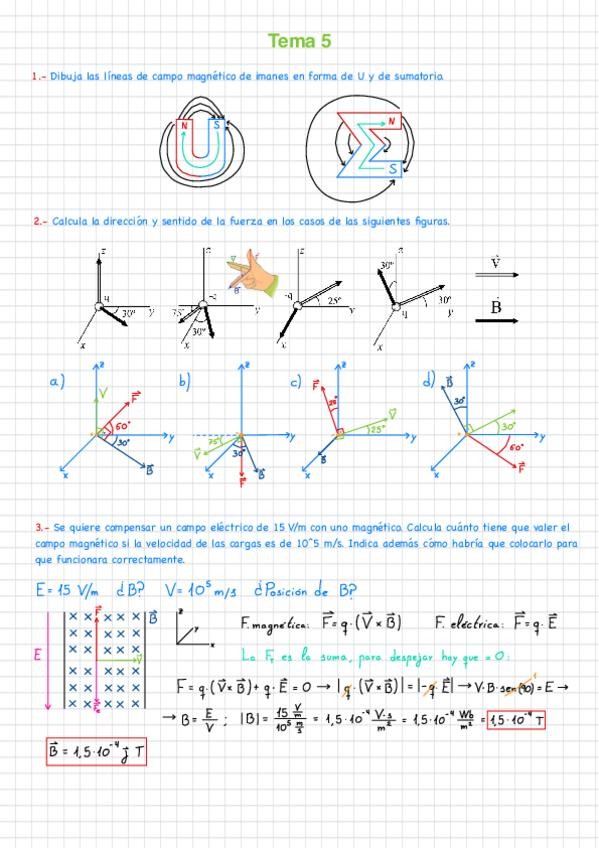 Tema 5
1.- Dibuja las líneas de campo magnético de imanes en forma de U y de sumatorio.
N S
N
S
2.- Calcula la dirección y sentido de la fuerza en los casos de las siguientes figuras.
z q 30° y x
z 75° 30° y x
z -q 25° y x
z 30° 30° q y x
V
B
a) z V F 60° 30° y B x
b) z y 75° 30° V B F x
c) z F 25° V 25° y B x
d) z B 30° 30° y 60° F x
3.- Se quiere compensar un campo eléctrico de 15 V/m con uno magnético. Calcula cuánto tiene que valer el
campo magnético si la velocidad de las cargas es de 10^5 m/s. Indica además cómo habría que colocarlo para
que funcionara correctamente.
E = 15 V/m ¿B? V = 10⁵ m/s ¿Posición de B?
F. magnética: F = q·(V×B) F. eléctrica: F = q·E
La Fₜ es la suma, para despejar hay que = 0:
F = q·(V×B) + q·E = 0 → |q·(V×B)| = |-q·E| → V·B·sen(90) = E →
→ B = E/V ; |B| = 15 V/m / 10⁵ m/s = 1,5·10⁻⁴ V·s/m² = 1,5·10⁻⁴ Wb/m² = 1,5·10⁻⁴ T
B = 1,5·10⁻⁴ j T